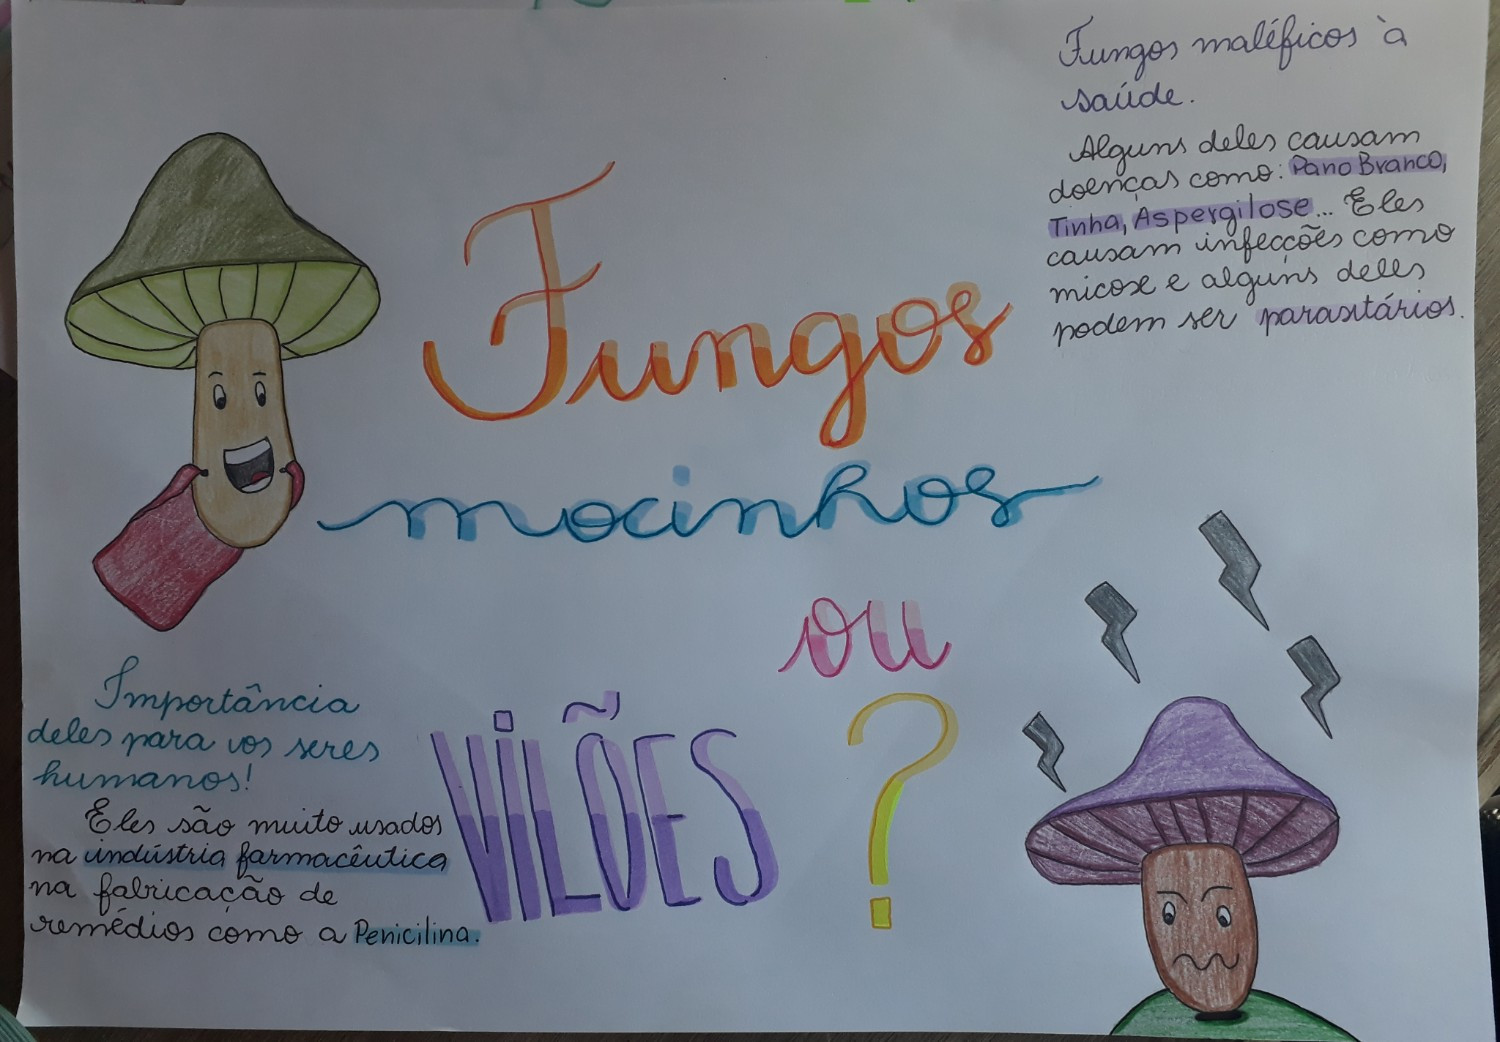 Fungos
mocinhos
ou
VILÕES ?
Fungos maléficos à
saúde.
Alguns deles causam
doenças como: Pano Branco,
Tinha, Aspergilose... Eles
causam infecções como
micose e alguns deles
podem ser parasitários.
Importância
deles para os seres
humanos!
Eles são muito usados
na indústria farmacêutica
na fabricação de
remédios como a Penicilina.